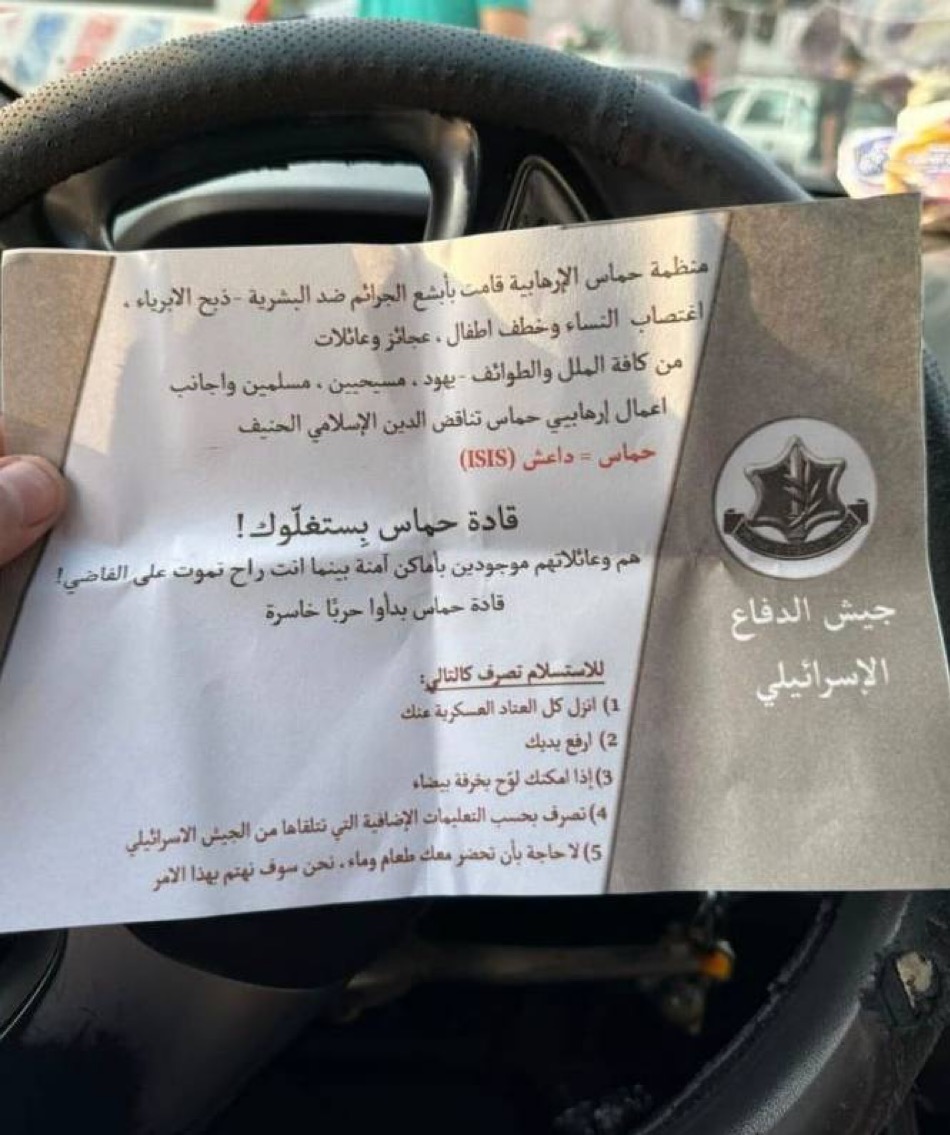 منظمة حماس الإرهابية قامت بأبشع الجرائم ضد البشرية - ذبح الابرياء ،
اغتصاب النساء وخطف اطفال ، عجائز وعائلات
من كافة الملل والطوائف - يهود ، مسيحيين ، مسلمين واجانب
اعمال إرهابيي حماس تناقض الدين الإسلامي الحنيف
حماس = داعش (ISIS)
قادة حماس بِستغلّوك!
هم وعائلاتهم موجودين بأماكن آمنة بينما انت راح تموت على الفاضي!
قادة حماس بدأوا حربًا خاسرة
للاستسلام تصرف كالتالي:
1) انزل كل العتاد العسكرية عنك
2) ارفع يديك
3) إذا امكنك لوّح بخرفة بيضاء
4) تصرف بحسب التعليمات الإضافية التي تتلقاها من الجيش الاسرائيلي
5) لا حاجة بأن تحضر معك طعام وماء، نحن سوف نهتم بهذا الامر
جيش الدفاع
الإسرائيلي